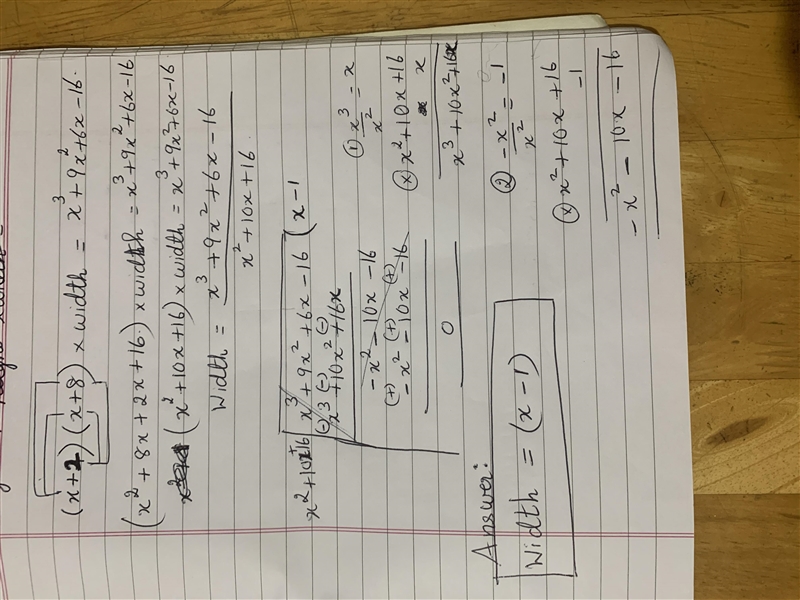 (x+2)(x+8) x width = x³ + 9x² + 6x - 16.
(x² + 8x + 2x + 16.) x width = x³ + 9x² + 6x - 16
(x² + 10x + 16) x width = x³ + 9x² + 6x - 16.
Width = x³ + 9x² + 6x - 16
x² + 10x + 16.
x² + 10x + 16 x³ + 9x² + 6x - 16 ( x - 1
(-) x³ (-) + 10x² (-) + 16x
- x² - 10x - 16
(+) - x² (+) - 10x (+) - 16
0
① x³ / x² = x
(x) x² + 10x + 16
x
x³ + 10x² + 16x
② - x² / x² = - 1
(x) x² + 10x + 16
- 1
- x² - 10x - 16
Answer:
Width = (x - 1)